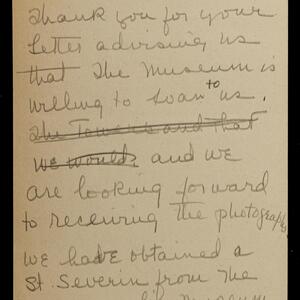 Thank you for your
letter advising us
that the museum is
willing to loan to us.
The Towers and that
we would, and we
are looking forward
to receiving the photographs
we have obtained a
St. Severin from the
museum